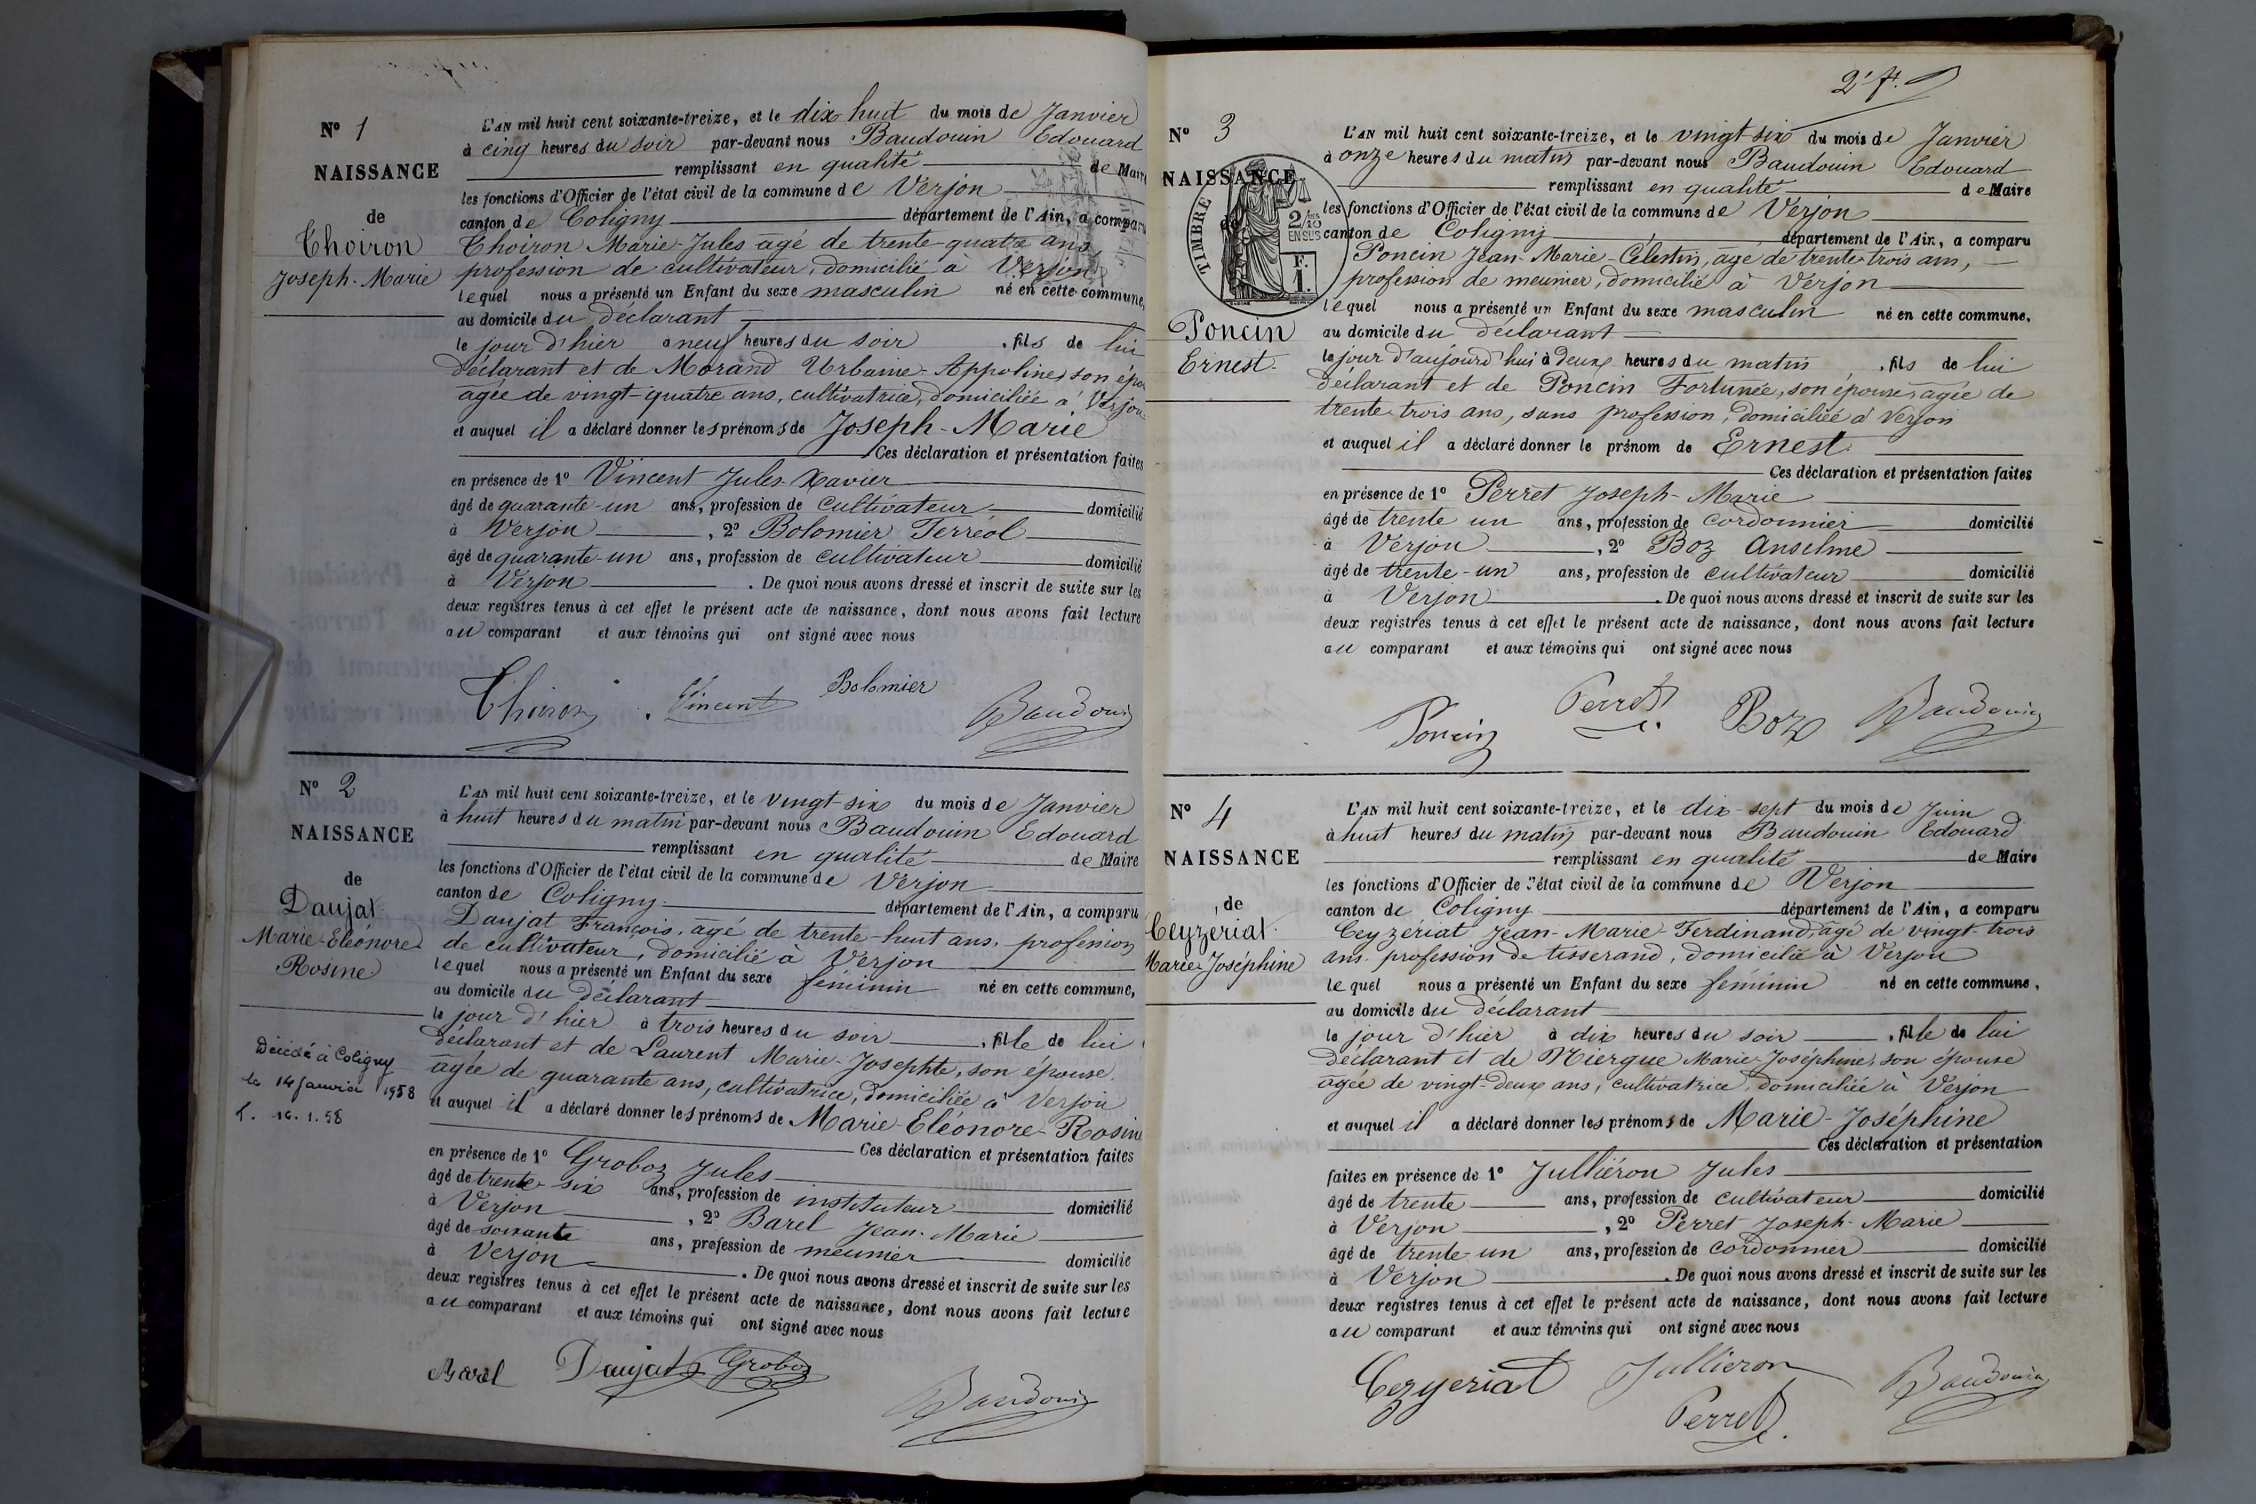 Nº 1
NAISSANCE
de
Thoiron
Joseph-Marie
L'AN mil huit cent soixante-treize, et le dix huit du mois de Janvier
à cinq heures du soir par-devant nous Baudouin Edouard
remplissant en qualité de Maire
les fonctions d'Officier de l'état civil de la commune de Verjon
canton de Coligny département de l'Ain, a comparu
Thoiron Marie-Jules âgé de trente-quatre ans
profession de cultivateur, domicilié à Verjon
lequel nous a présenté un Enfant du sexe masculin né en cette commune,
au domicile du déclarant
le jour d'hier à neuf heures du soir , fils de lui
déclarant et de Morand Urbaine-Appoline, son épou
âgée de vingt-quatre ans, cultivatrice, domiciliée à Verjon
et auquel il a déclaré donner les prénoms de Joseph-Marie
Ces déclaration et présentation faites
en présence de 1º Vincent Jules Xavier
âgé de quarante-un ans, profession de cultivateur domicilié
à Verjon , 2º Bolomier Ferréol
âgé de quarante-un ans, profession de cultivateur domicilié
à Verjon . De quoi nous avons dressé et inscrit de suite sur les
deux registres tenus à cet effet le présent acte de naissance, dont nous avons fait lecture
au comparant et aux témoins qui ont signé avec nous
Thoiron Vincent Bolomier Baudouin
Nº 2
NAISSANCE
de
Daujat
Marie-Eléonore
Rosine
Décédé à Coligny
le 14 janvier 1958
16.1.58
L'AN mil huit cent soixante-treize, et le vingt-six du mois de Janvier
à huit heures du matin par-devant nous Baudouin Edouard
remplissant en qualité de Maire
les fonctions d'Officier de l'état civil de la commune de Verjon
canton de Coligny département de l'Ain, a comparu
Daujat François, âgé de trente-huit ans, profession
de cultivateur, domicilié à Verjon
lequel nous a présenté un Enfant du sexe féminin né en cette commune,
au domicile du déclarant
le jour d'hier à trois heures du soir , fille de lui
déclarant et de Laurent Marie-Josephte, son épouse
âgée de quarante ans, cultivatrice, domiciliée à Verjon
et auquel il a déclaré donner les prénoms de Marie-Eléonore-Rosine
Ces déclaration et présentation faites
en présence de 1º Groboz Jules
âgé de trente-six ans, profession de instituteur domicilié
à Verjon , 2º Barel Jean-Marie
âgé de soixante ans, profession de meunier domicilié
à Verjon . De quoi nous avons dressé et inscrit de suite sur les
deux registres tenus à cet effet le présent acte de naissance, dont nous avons fait lecture
au comparant et aux témoins qui ont signé avec nous
Barel Daujat Groboz Baudouin
2e ft.
Nº 3
NAISSANCE
de
TIMBRE
2/10
EN SUS
F.
1.
Poncin
Ernest
L'AN mil huit cent soixante-treize, et le vingt-six du mois de Janvier
à onze heures du matin par-devant nous Baudouin Edouard
remplissant en qualité de Maire
les fonctions d'Officier de l'état civil de la commune de Verjon
canton de Coligny département de l'Ain, a comparu
Poncin Jean-Marie-Célestin, âgé de trente-trois ans,
profession de meunier, domicilié à Verjon
lequel nous a présenté un Enfant du sexe masculin né en cette commune,
au domicile du déclarant
le jour d'aujourd'hui à deux heures du matin , fils de lui
déclarant et de Poncin Fortunée, son épouse, âgée de
trente-trois ans, sans profession, domiciliée à Verjon
et auquel il a déclaré donner le prénom de Ernest
Ces déclaration et présentation faites
en présence de 1º Perret Joseph-Marie
âgé de trente un ans, profession de cordonnier domicilié
à Verjon , 2º Boz Anselme
âgé de trente-un ans, profession de cultivateur domicilié
à Verjon . De quoi nous avons dressé et inscrit de suite sur les
deux registres tenus à cet effet le présent acte de naissance, dont nous avons fait lecture
au comparant et aux témoins qui ont signé avec nous
Poncin Perret Boz Baudouin
Nº 4
NAISSANCE
de
Ceyzeriat
Marie-Joséphine
L'AN mil huit cent soixante-treize, et le dix-sept du mois de Juin
à huit heures du matin par-devant nous Baudouin Edouard
remplissant en qualité de Maire
les fonctions d'Officier de l'état civil de la commune de Verjon
canton de Coligny département de l'Ain, a comparu
Ceyzériat Jean-Marie-Ferdinand, âgé de vingt trois
ans profession de tisserand, domicilié à Verjon
lequel nous a présenté un Enfant du sexe féminin né en cette commune,
au domicile du déclarant
le jour d'hier à dix heures du soir , fille de lui
déclarant et de Niergue Marie-Joséphine, son épouse
âgée de vingt-deux ans, cultivatrice, domiciliée à Verjon
et auquel il a déclaré donner les prénoms de Marie-Joséphine
Ces déclaration et présentation
faites en présence de 1º Julliéron Jules
âgé de trente ans, profession de cultivateur domicilié
à Verjon , 2º Perret Joseph-Marie
âgé de trente-un ans, profession de cordonnier domicilié
à Verjon . De quoi nous avons dressé et inscrit de suite sur les
deux registres tenus à cet effet le présent acte de naissance, dont nous avons fait lecture
au comparant et aux témoins qui ont signé avec nous
Cezyeriat Jullieron Baudouin
Perret